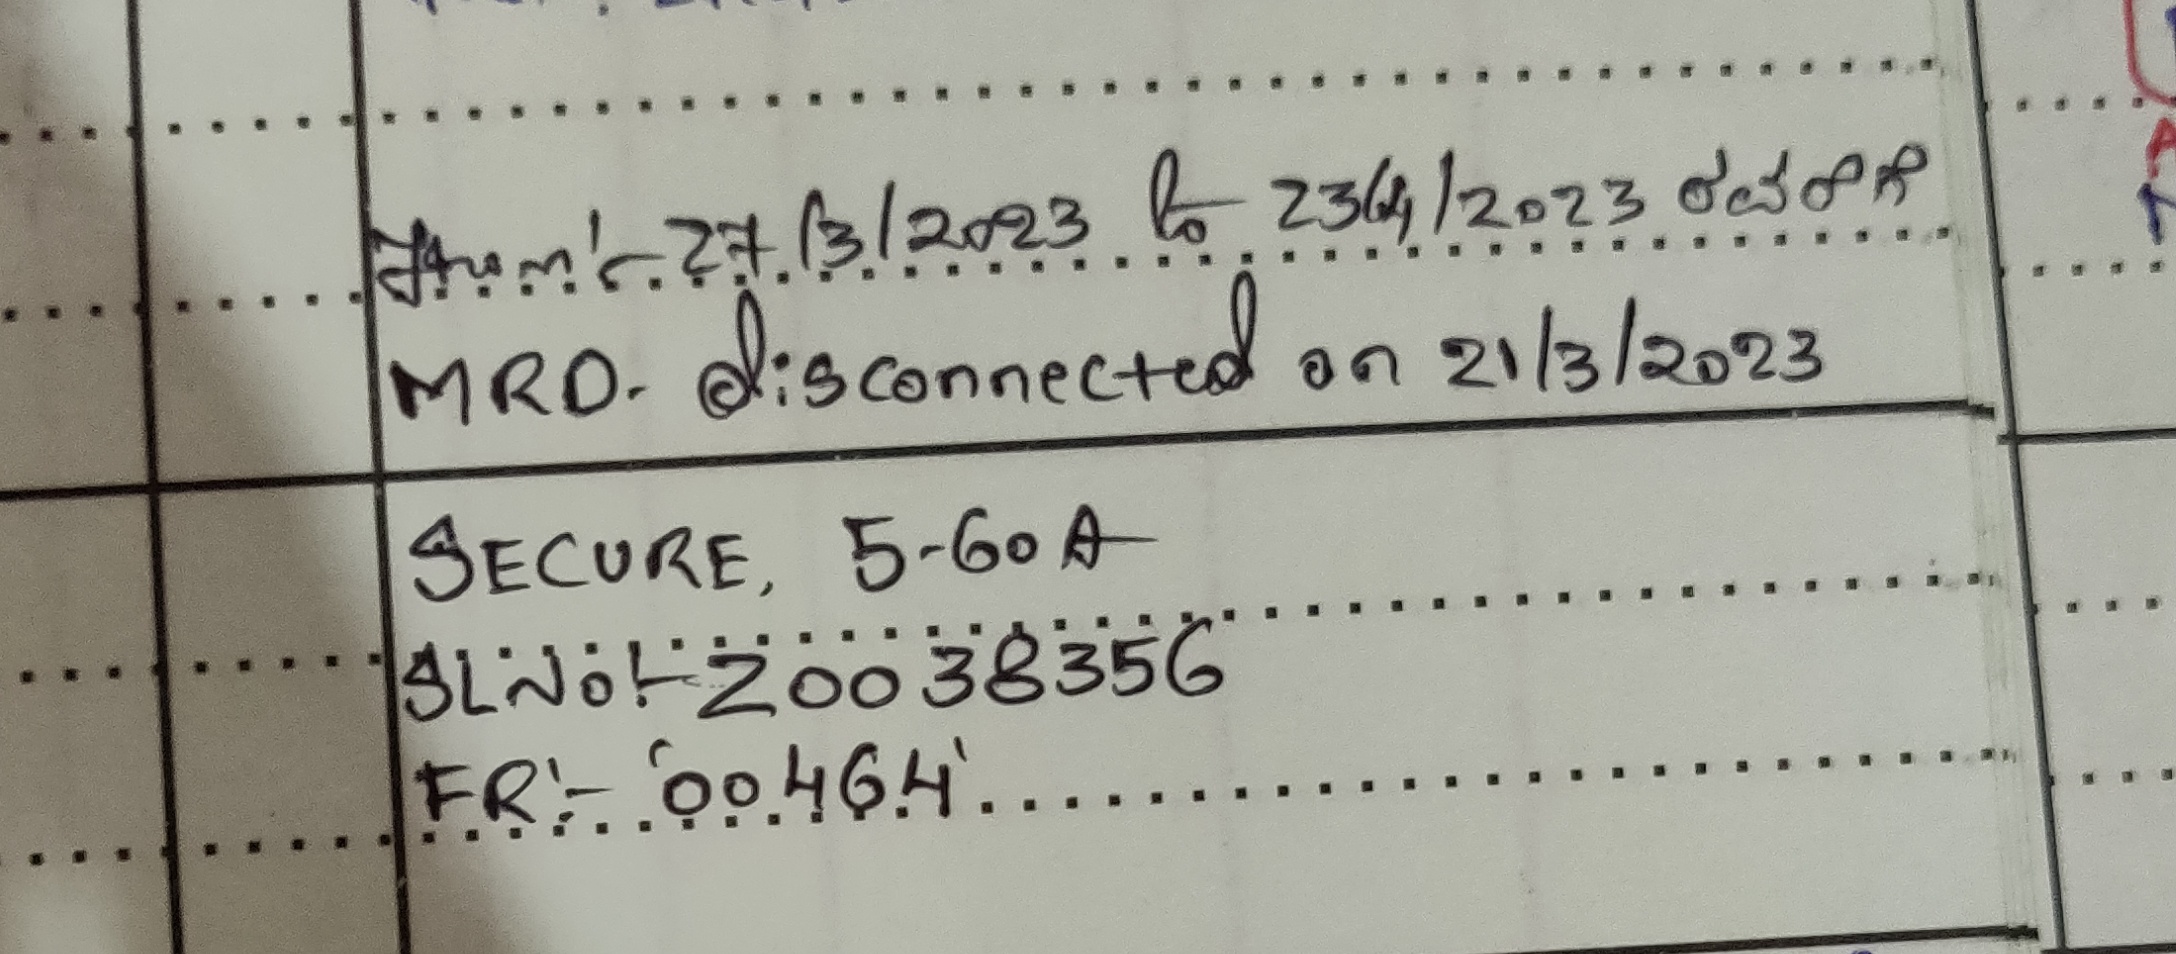 From:- 27/3/2023 to 23/4/2023 ರವರೆಗೆ
MRD. disconnected on 21/3/2023
SECURE, 5-60A
SLNO:- 20038356
FR:- '00464'